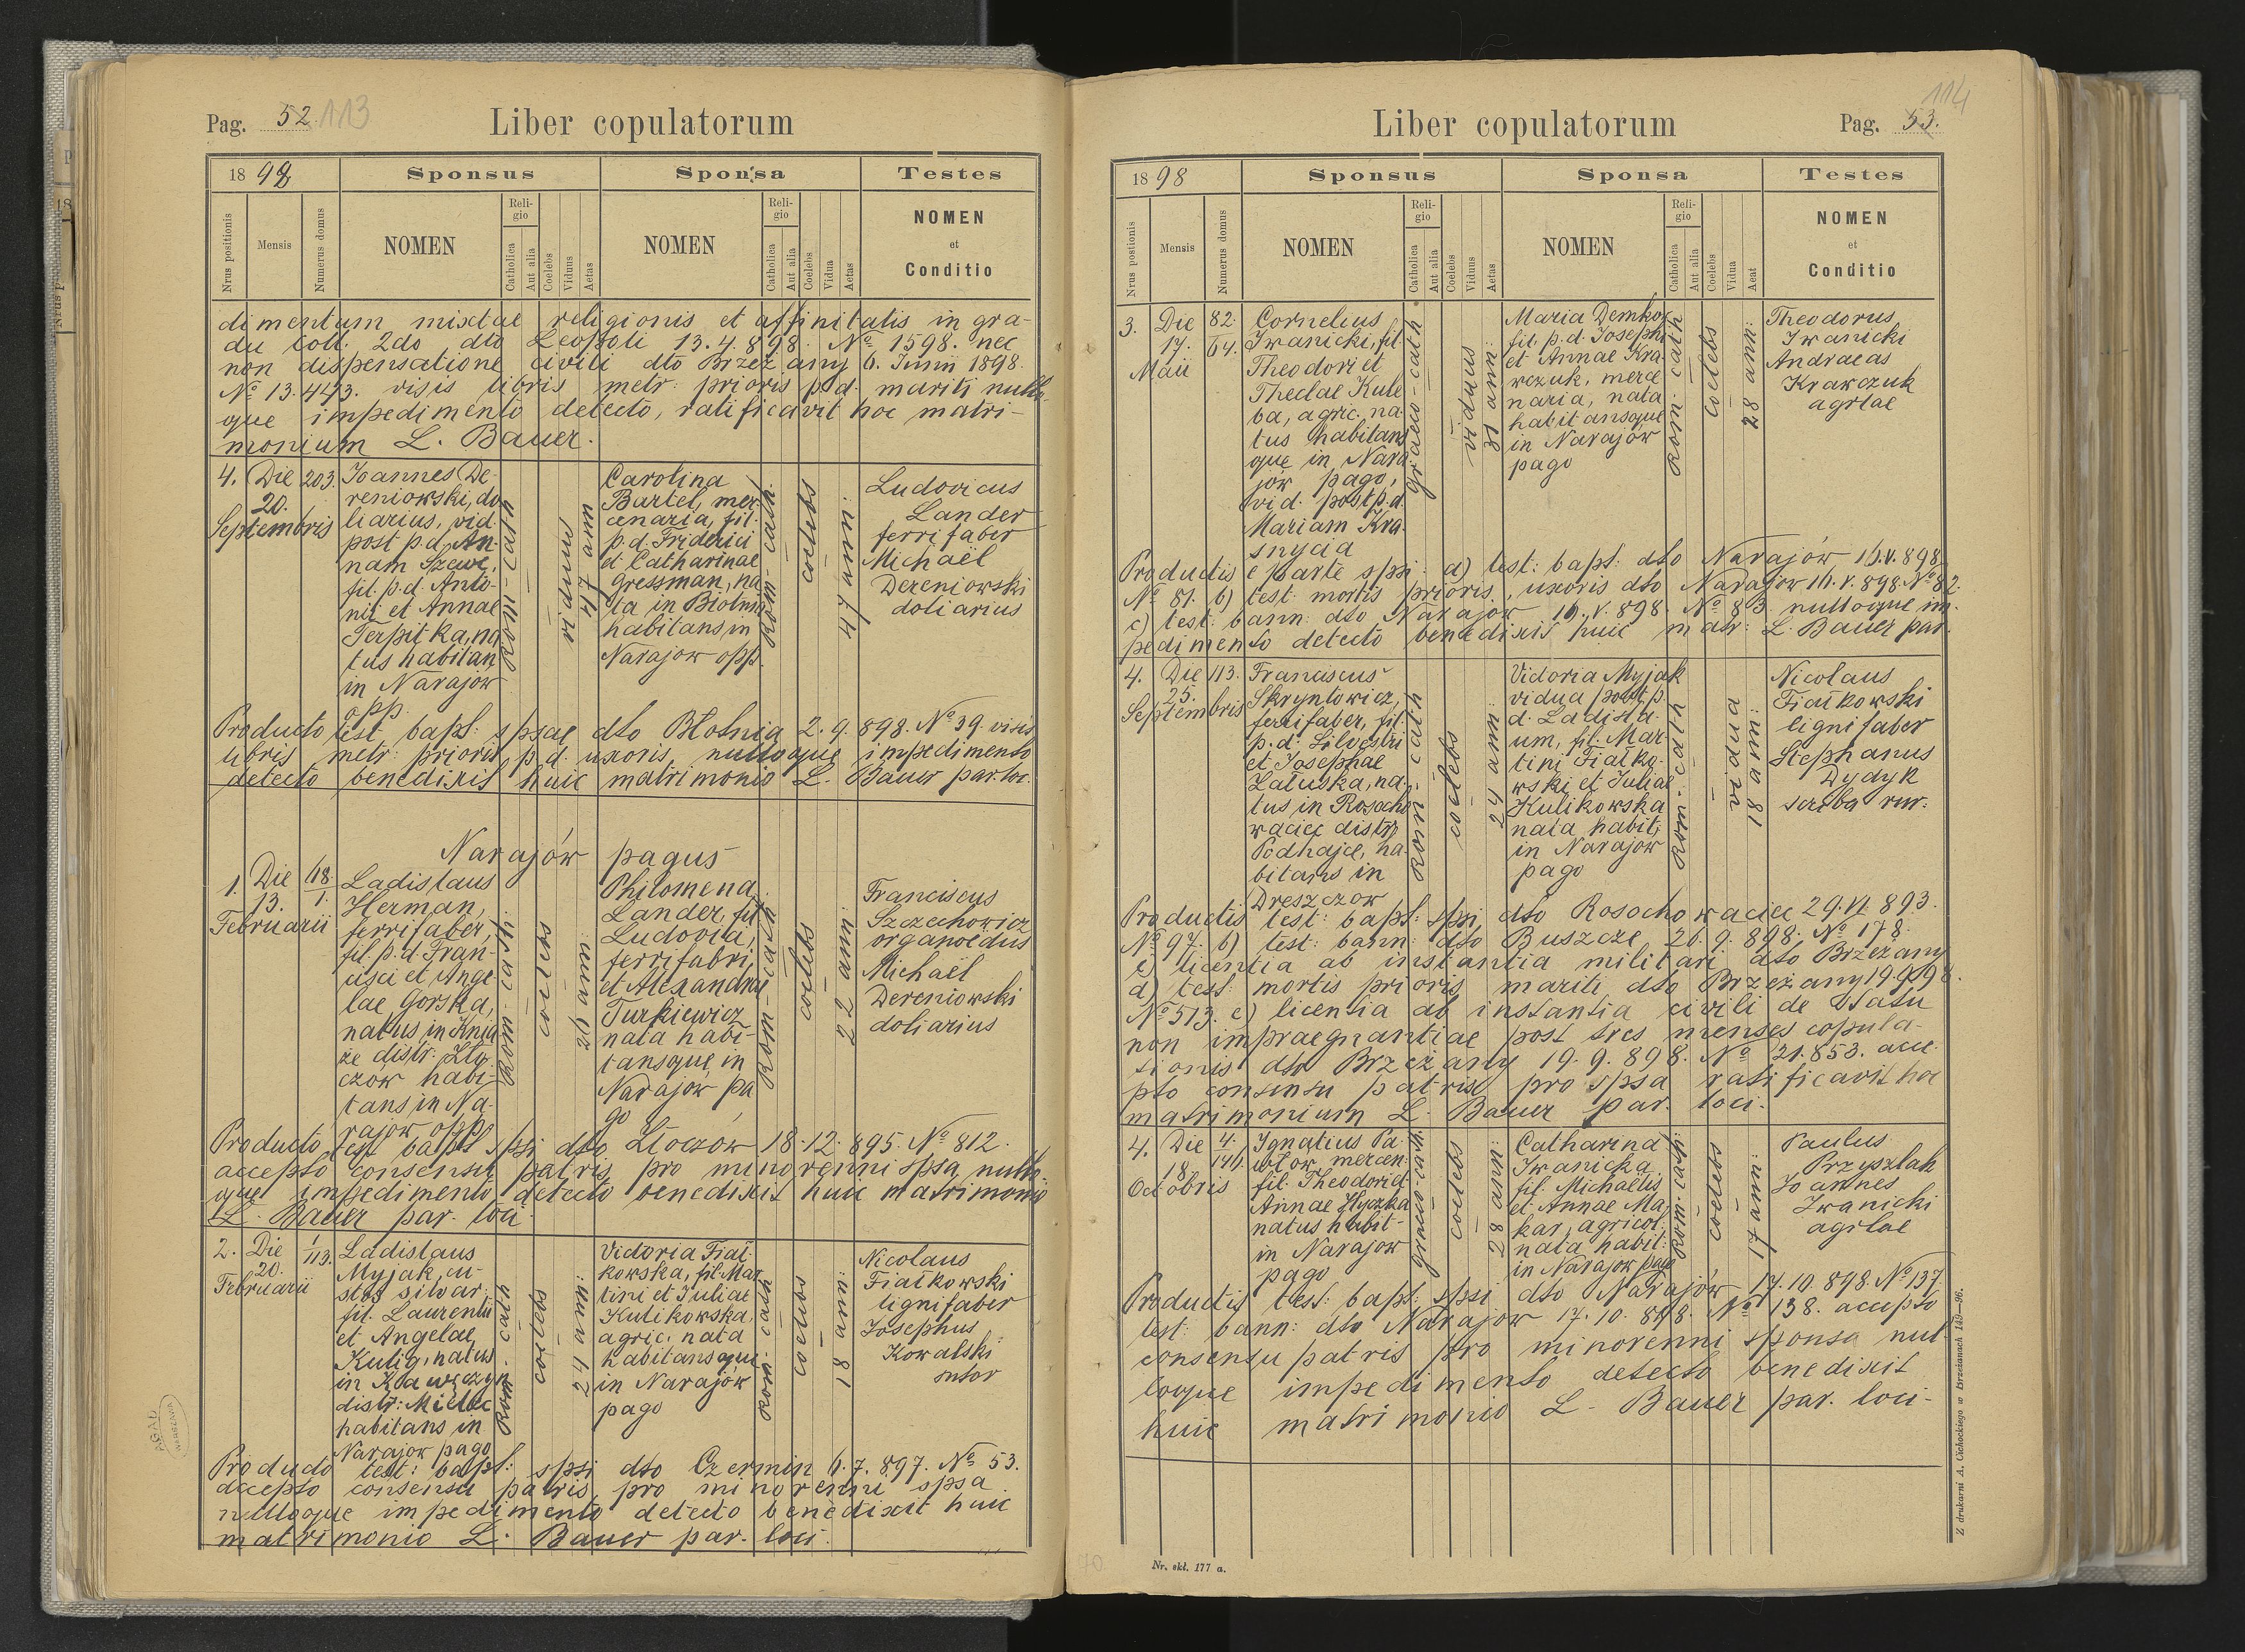 Pag. 52. 113
Liber copulatorum
1898
Sponsus
Sponsa
Testes
Nrus positionis
Mensis
Numerus domus
NOMEN
Religio
Catholica
Aut alia
Coelebs
Viduus
Aetas
NOMEN
Religio
Catholica
Aut alia
Coelebs
Vidua
Aetas
NOMEN
et
Conditio
dimentum mixtae religionis et affinitatis in gra-
du coll. 2do dto Leopoli 13.4.898. No 1598. nec
non dispensatione civili dto Brzeżany 6. Junii 1898.
No 13.443. visis libris metr: prioris p.d. mariti nullo-
que impedimento detecto, ratificavit hoc matri-
monium L. Bauer.
4. Die
20.
Septembris
203.
Joannes De-
reniowski, do
liarius, vid.
post p.d. An-
nam Szewc,
fil. p.d. Anto-
nii et Annae
Terpitka, na
tus habitan
in Narajów
opp.
Rom-cath
viduus
44 ann
Carolina
Bartel, mer
cenaria, fil.
p.d. Friderici
et Catharinae
Gressman, na
ta in Błotnia
habitans in
Narajow opp.
Rom-cath.
coelebs
44 ann:
Ludovicus
Lander
ferrifaber
Michaël
Dereniowski
doliarius
Producto test. bapt: spsae dto Błotnia 2.9.898. No 39. visis
libris metr: prioris p.d. uxoris, nulloque impedimento
detecto benedixit huic matrimonio L. Bauer par. loc.
Narajów pagus
1. Die
13.
Februarii
68.
1.
Ladislaus
Herman,
ferrifaber,
fil. p.d. Fran-
cisci et Ange
lae Gorska,
natus in Knia
że distr. Zło
czów habi-
tans in Na-
rajow opp.
Rom-cath.
coelebs
Philomena
Lander, fil.
Ludovici,
ferrifabri,
et Alexandrae
Turkiewicz
nata habi-
tansque in
Narajow pa
go
Rom-cath
coelebs
22 ann:
Franciscus
Szczechowicz
organoedus
Michaël
Dereniowski
doliarius
Producto test bapt. spsi dto Złoczow 18.12.895. No 812.
accepto consensu patris pro minorenni spsa nullo-
que impedimento detecto benedixit huic matrimonio
L. Bauer par. loci.
2. Die
20.
Februarii
1
113.
Ladislaus
Myjak, cu-
stos silvar.
fil. Laurentii
et Angelae
Kulig, natus
in
distr: Mielec
habitans in
Narajow pago
Rom. cath
coelebs
24 ann:
Victoria Fiał-
kowska, fil. Mar
tini et Juliae
Kulikowska
agric. nata
habitansque
in Narajow
pago
Rom: cath
coelebs
18 ann:
Nicolaus
Fiałkowski
lignifaber
Josephus
Kowalski
sutor
Producto test: bapt: spsi dto Czermin 6.7.897. No 53.
accepto consensu patris pro minorenni spsa
nulloque impedimento detecto benedixit huic
matrimonio L. Bauer par. loci.
AGAD
WARSZAWA
114
Liber copulatorum
Pag. 53.
1898
Sponsus
Sponsa
Testes
Nrus postionis
Mensis
Numerus domus
NOMEN
Religio
Catholica
Aut alia
Coelebs
Viduus
Aetas
NOMEN
Religio
Catholica
Aut alia
Coelebs
Vidua
Aeat
NOMEN
et
Conditio
3. Die
17.
Maii
82.
64.
Cornelius
Iwanicki, fil.
Theodori et
Theclae Kule
ba, agric. na
tus habitans
que in Nara
jów pago,
vid. post p.d.
Mariam Kra-
snycia
Graeco-cath
viduus
31 ann:
Maria Demko,
fil. p.d. Josephi
et Annae Kra
wczuk, merce
naria, nata
habitansque
in Narajow
pago
Rom: cath
coelebs
28 ann:
Theodorus
Iwanicki
Andraeas
Krawczuk
agrlae
Productis e parte spsi: a) test: bapt: dto Narajów 16.V.898
No 81. b) test: mortis prioris uxoris dto Narajow 16.V.898. No 82.
c) test: bann: dto Narajow 16.V.898. No 83. nulloque im-
pedimento detecto benedixit huic matr: L. Bauer par.
4. Die
25.
Septembris
113.
Franciscus
Skryntowicz,
ferrifaber, fil.
p.d. Silvestri
et Josephae
Załuska, na-
tus in Rosocho
waciec distr.
Podhajce, ha-
bitans in
Dreszczow
Rom-cath
coelebs
24 ann:
Victoria Myjak
vidua post p.
d. Ladisla-
um, fil. Mar
tini Fiałko-
wski et Juliae
Kulikowska
nata habit:
in Narajow
pago
Rom-cath
vidua
18 ann:
Nicolaus
Fiałkowski
lignifaber
Stephanus
Dydyk
scriba rur.
Productis test: bapt: spsi dto Rosochowaciec 29.VI.893.
No 97. b) test: bann: dto Buszcze 26.9.898. No 178.
c) licentia ab instantia militari dto Brzeżany
d) test: mortis prioris mariti dto Brzeżany 19.9.98.
No 513. e) licentia ab instantia civili de statu
non impraegnantiae post tres menses copula-
tionis dto Brzeżany 19.9.898. No 21.853. acce-
pto consensu patris pro spsa ratificavit hoc
matrimonium L. Bauer par. loci.
4. Die
18.
Octobris
4.
146.
Ignatius Pa-
wlow, mercen:
fil. Theodori et
Annae Hyczka
natus habit-
in Narajow
pago
graeco-cath.
coelebs
28 ann:
Catharina
Iwanicka
fil. Michaelis
et Annae Ma-
kar, agricol:
nata habit:
in Narajow pago
Rom-cath:
coelebs
17 ann:
Paulus
Przyszlak
Joannes
Iwanicki
agrlae
Productis test: bapt: spsi dto Narajów 17.10.898. No 137.
test: bann: dto Narajow 17.10.898. No 138. accepto
consensu patris pro minorenni sponsa nul
loque impedimento detecto benedixit
huic matrimonio L. Bauer par. loci.
Nr. skł. 177 a.
Z drukarni A. Cichockiego w Brzeżanach 149—96.